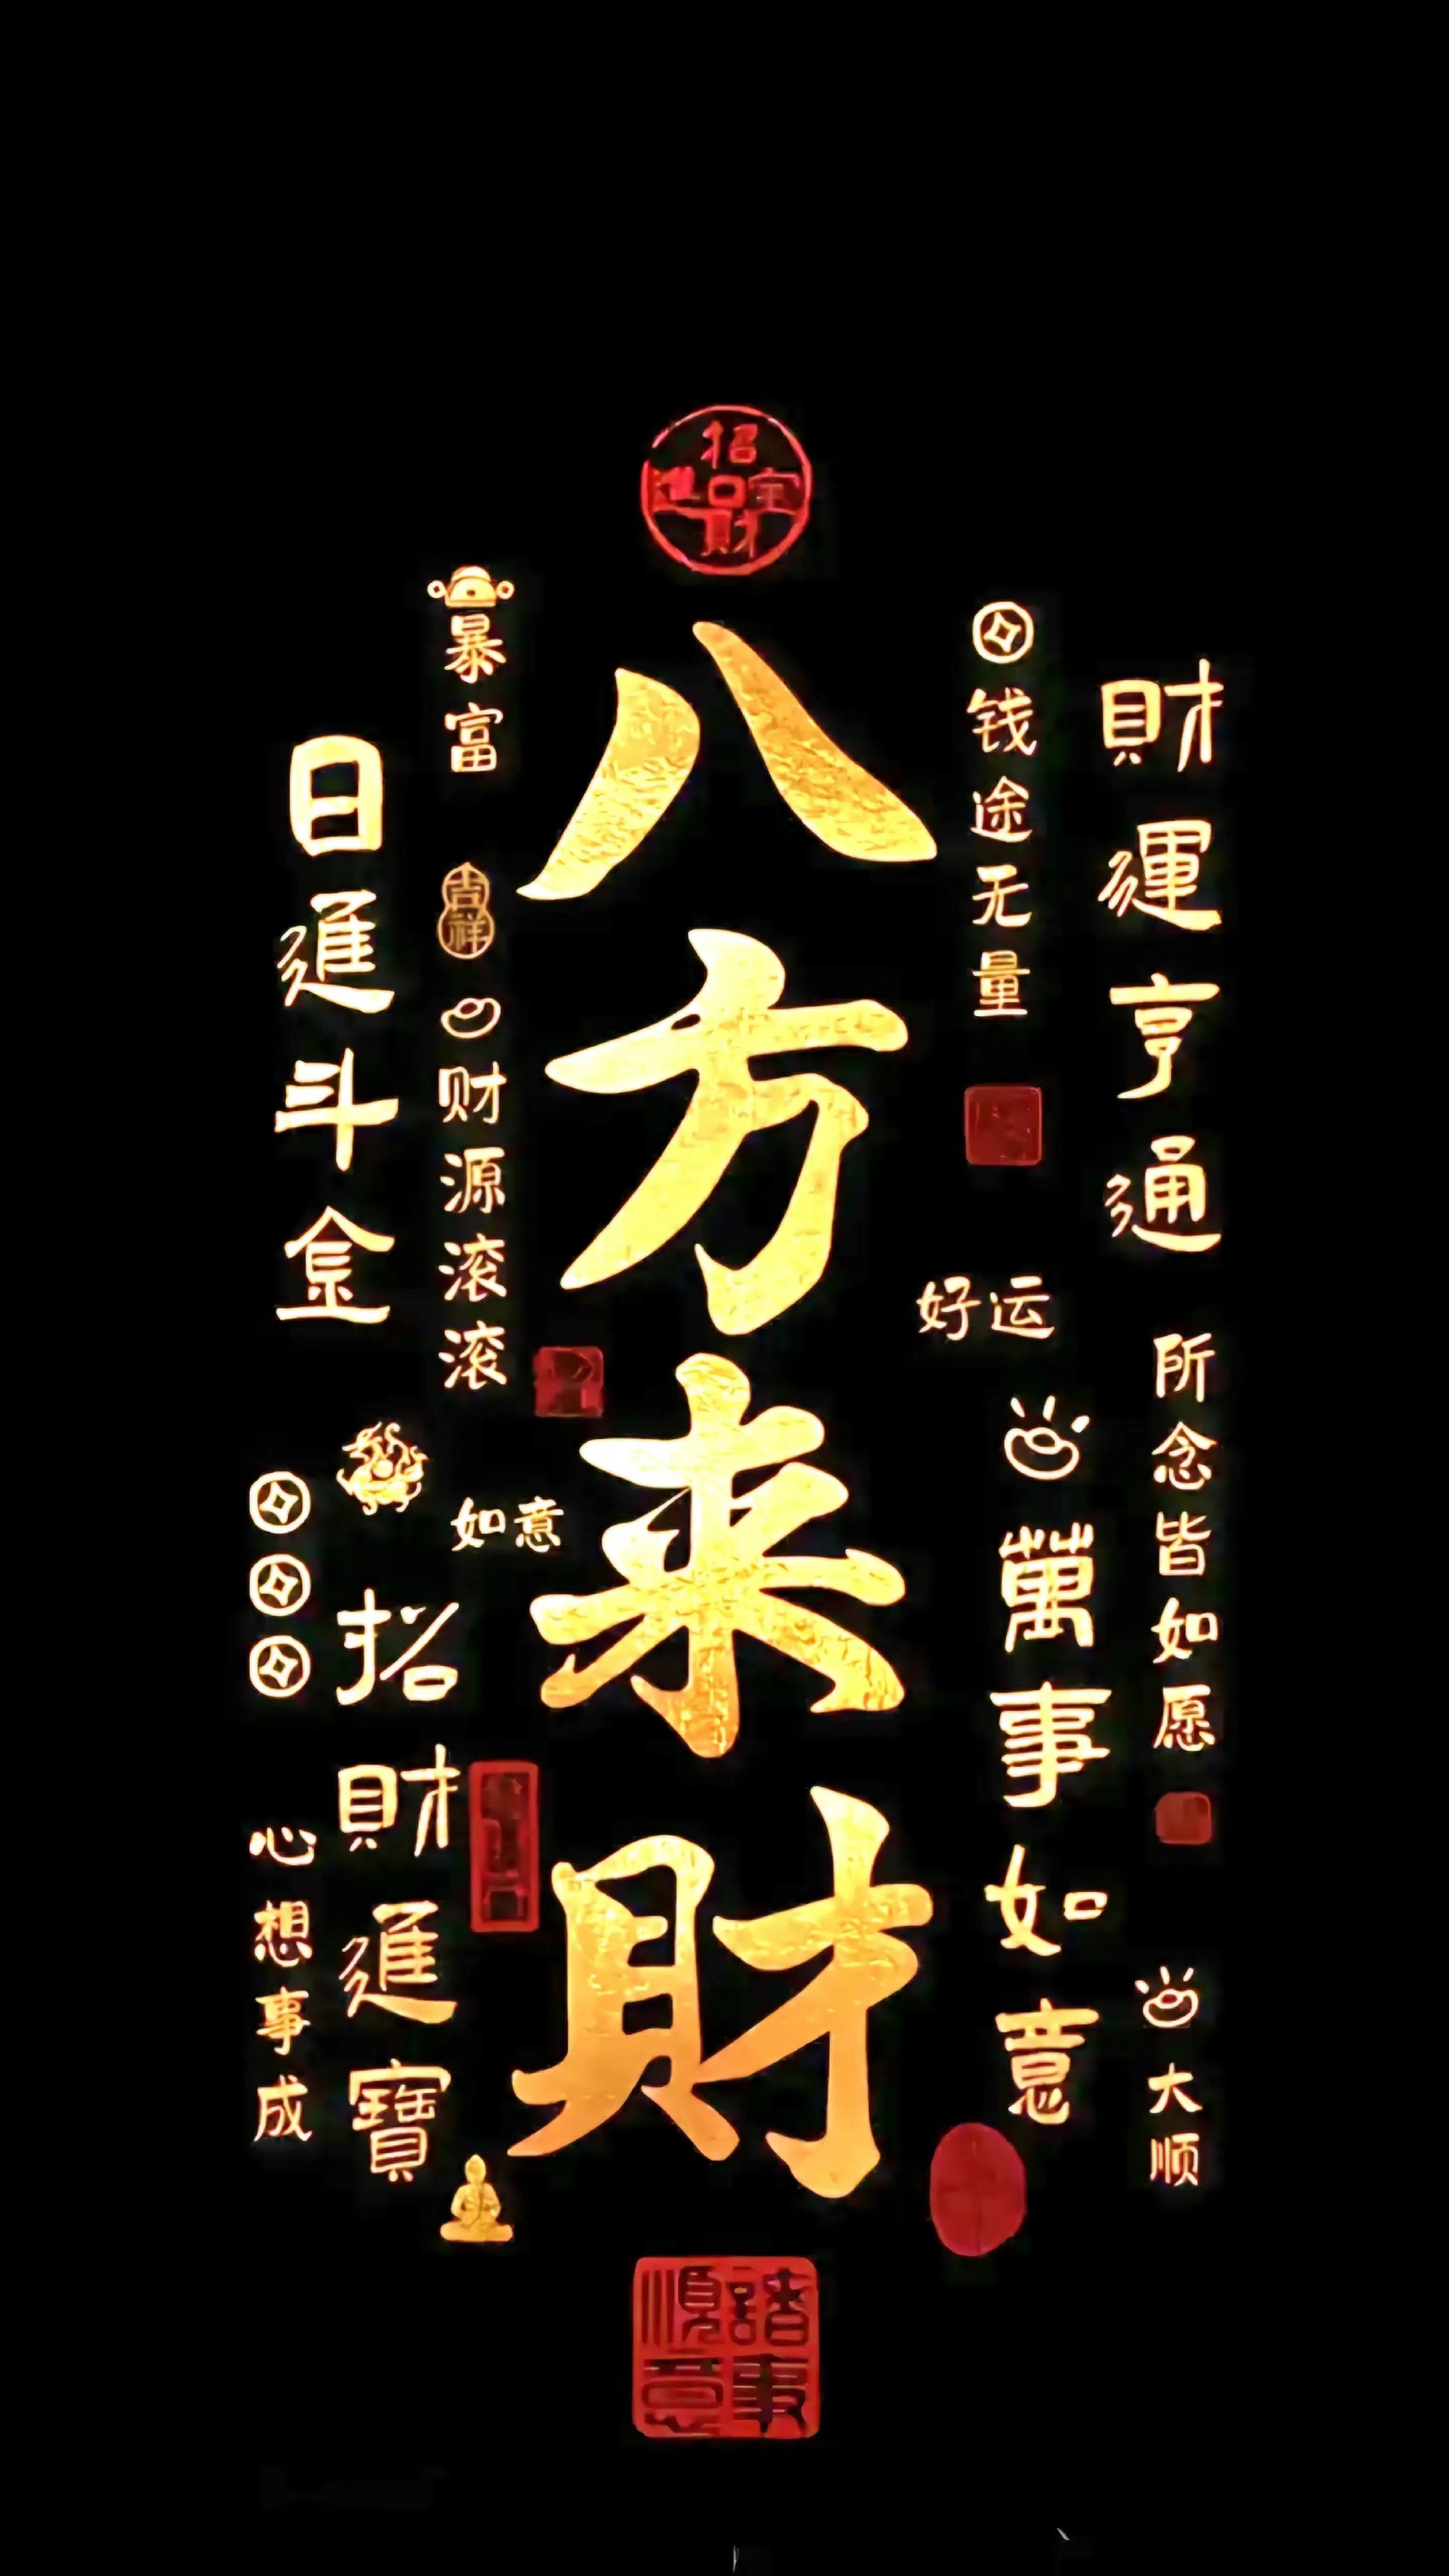 招財進宝
八方来財
暴富
吉祥
财源滚滚
日進斗金
如意
招財進寶
心想事成
钱途无量
財運亨通
好运
所念皆如愿
萬事如意
大顺
諸事順意